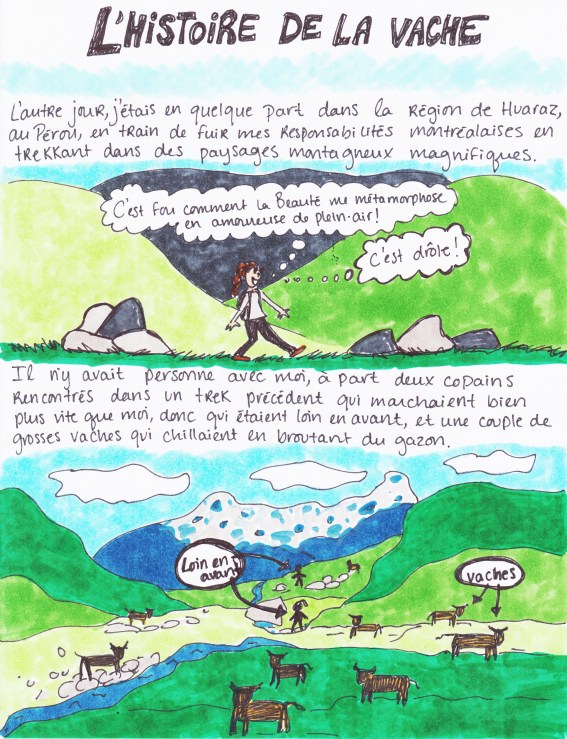 L'HISTOIRE DE LA VACHE
L'autre jour, j'étais en quelque part dans la Région de Huaraz,
au Pérou, en train de fuir mes Responsabilités montréalaises en
trekkant dans des paysages montagneux magnifiques.
C'est fou comment la Beauté me métamorphose
en amoureuse de plein-air!
C'est drôle!
Il n'y avait personne avec moi, à part deux copains
Rencontrés dans un trek précédent qui marchaient bien
plus vite que moi, donc qui étaient loin en avant, et une couple de
grosses vaches qui chillaient en broutant du gazon.
Loin en
avant
vaches